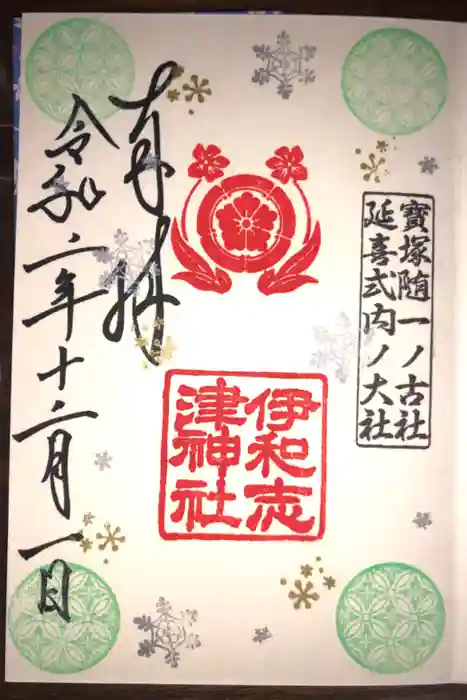 寶塚随一ノ古社
延喜式内ノ大社
伊和志
津神社
奉拝
令和二年十二月一日